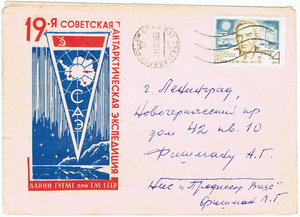 19-я СОВЕТСКАЯ
АНТАРКТИЧЕСКАЯ ЭКСПЕДИЦИЯ
САЭ
ААНИИ ГУГМС при СМ СССР
г. Ленинград,
Новочеркасский пр
дом 42 кв. 10
Фишману А.Г.
Нис „Профессор Визе"
Фишман Л.Г.